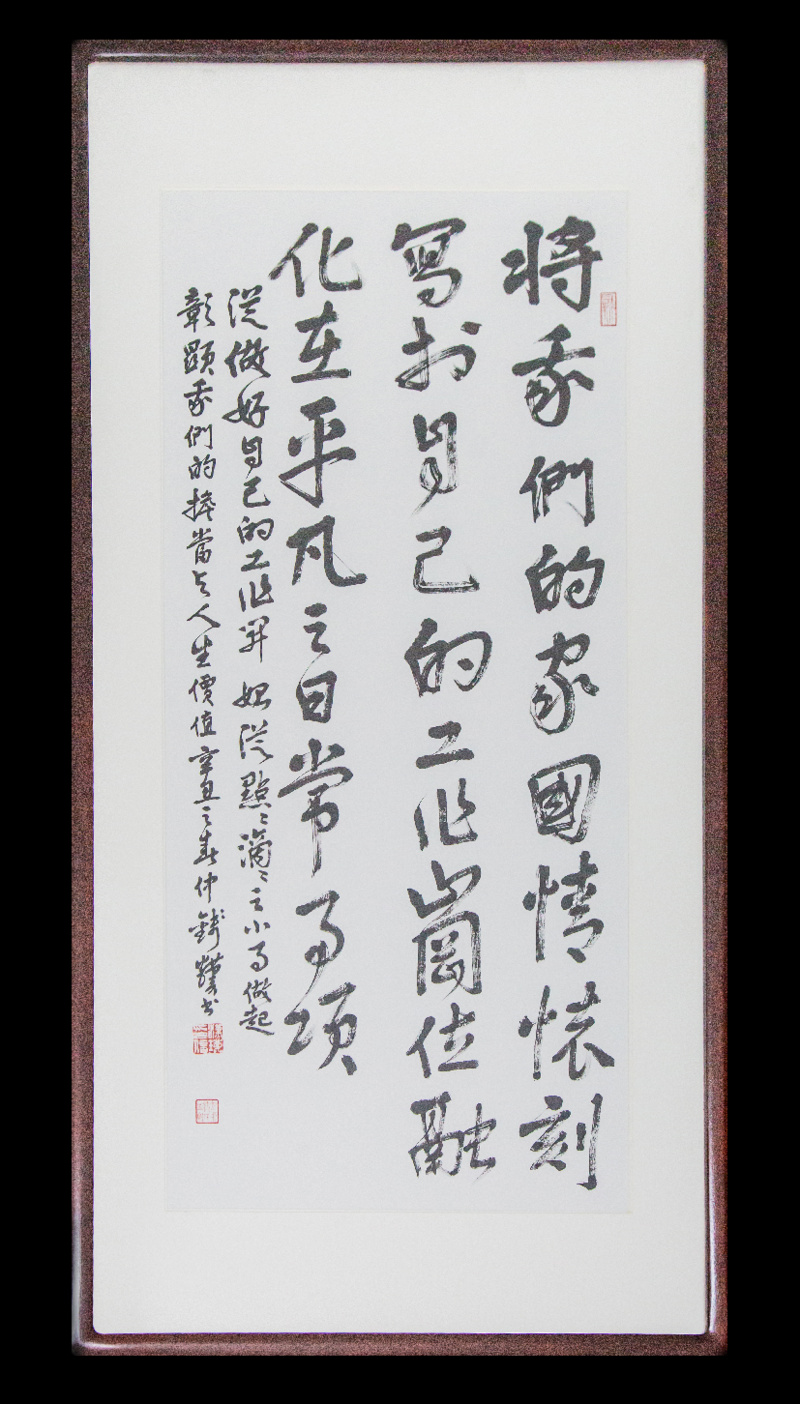 将我們的家國情懷刻
寫扵自己的工作崗位融
化在平凡之日常事項
從做好自己的工作開始從點々滴々之小事做起
彰顯我們的擔當与人生價值辛丑之春仲錢書